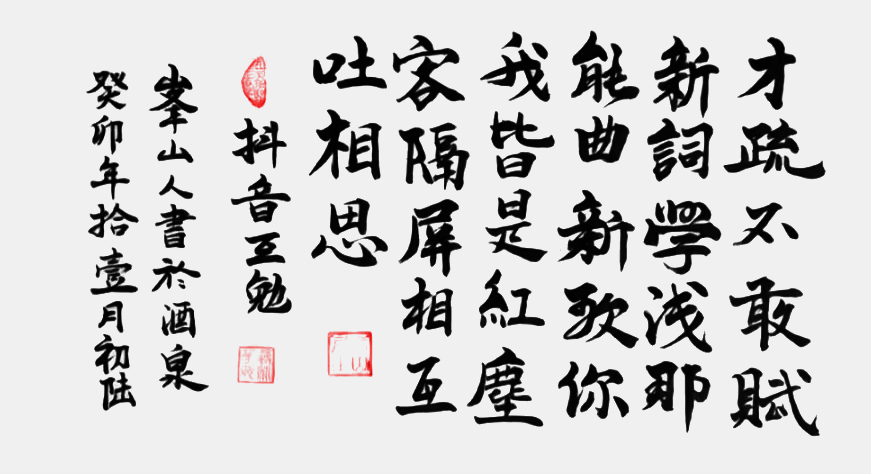 才疏不敢賦
新詞學浅那
能曲新歌你
我皆是紅塵
客隔屏相互
吐相思
抖音互勉
峯山人書於酒泉
癸卯年拾壹月初陆